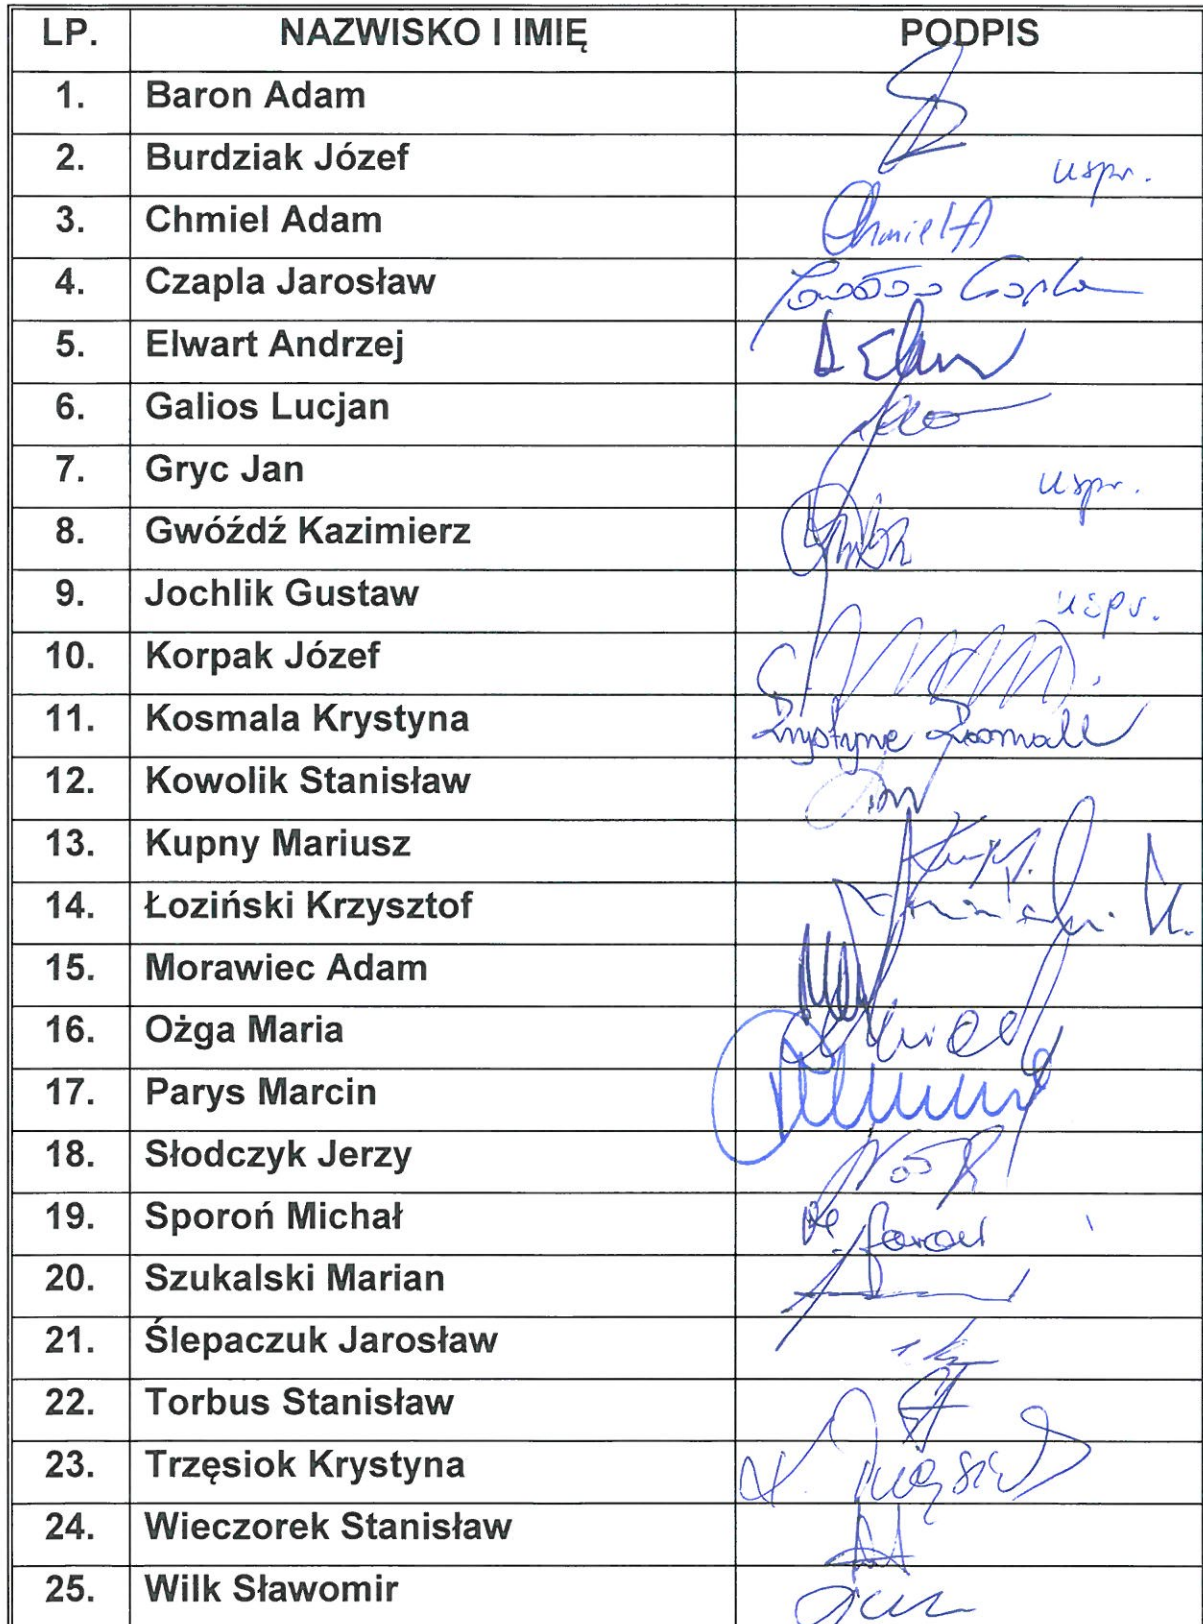 LP. NAZWISKO I IMIĘ PODPIS
1. Baron Adam
2. Burdziak Józef uspr.
3. Chmiel Adam Chmiel A
4. Czapla Jarosław
5. Elwart Andrzej
6. Galios Lucjan
7. Gryc Jan uspr.
8. Gwóźdź Kazimierz
9. Jochlik Gustaw uspr.
10. Korpak Józef
11. Kosmala Krystyna
12. Kowolik Stanisław
13. Kupny Mariusz
14. Łoziński Krzysztof
15. Morawiec Adam
16. Ożga Maria
17. Parys Marcin
18. Słodczyk Jerzy
19. Sporoń Michał
20. Szukalski Marian
21. Ślepaczuk Jarosław
22. Torbus Stanisław
23. Trzęsiok Krystyna
24. Wieczorek Stanisław
25. Wilk Sławomir